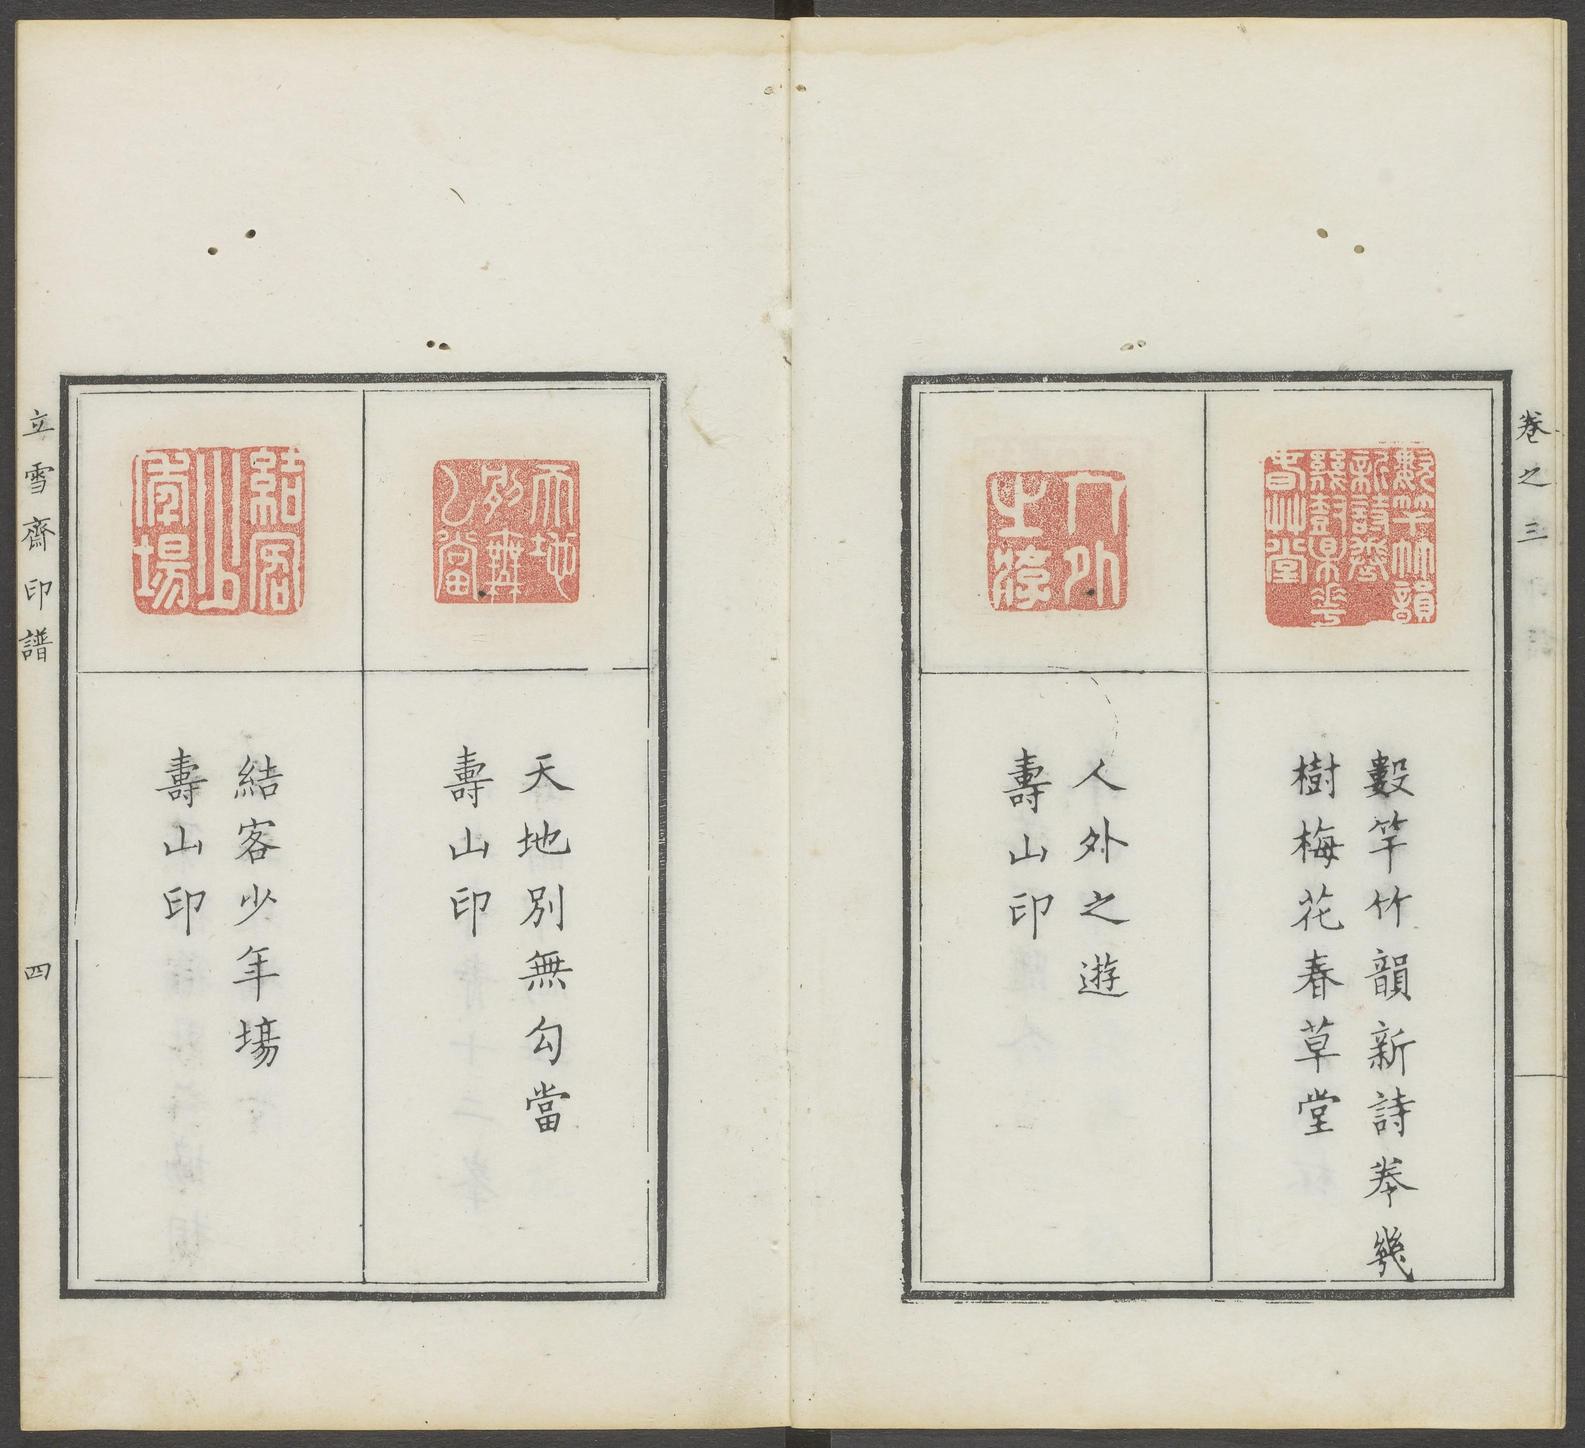 卷之三
數竿竹韻新詩奉幾
樹梅花春草堂
人外之遊
壽山印
天地別無勾當
壽山印
結客少年場
壽山印
立雪齋印譜
四